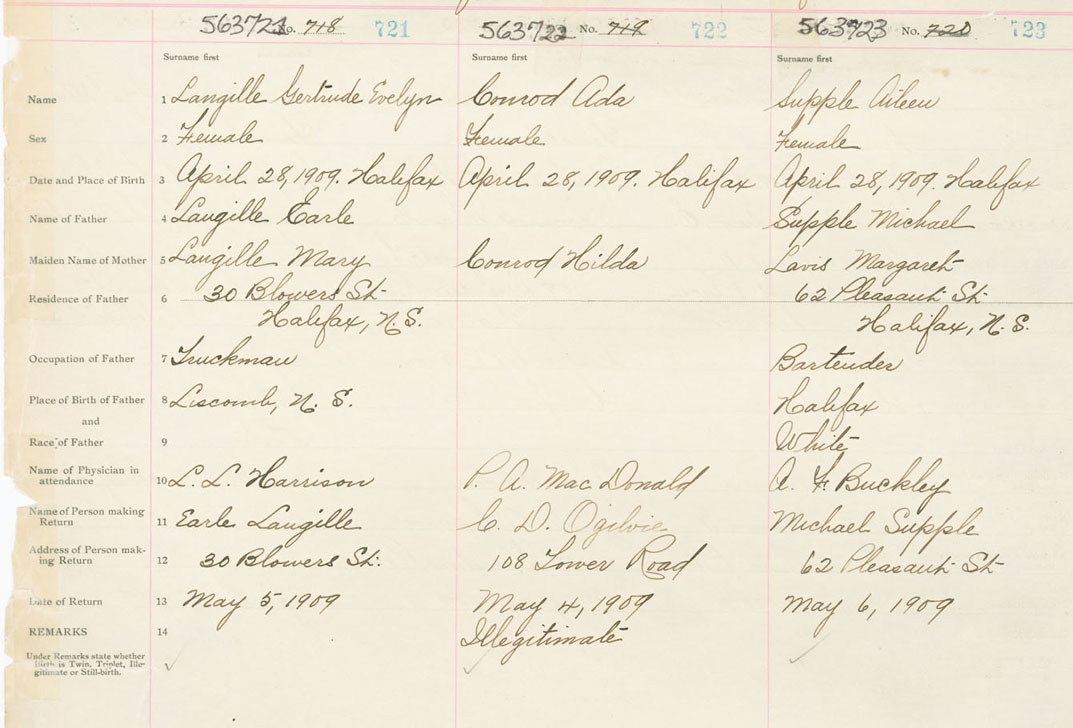 563721 No. 718 721 563722 No. 719 722 563723 No. 720 723
Surname first Surname first Surname first
Name 1 Langille Gertrude Evelyn Conrod Ada Supple Aileen
Sex 2 Female Female Female
Date and Place of Birth 3 April 28, 1909. Halifax April 28, 1909. Halifax April 28, 1909. Halifax
Name of Father 4 Langille Earle Supple Michael
Maiden Name of Mother 5 Langille Mary Conrod Hilda Lavis Margaret
Residence of Father 6 30 Blowers St. 62 Pleasant St
Halifax, N.S. Halifax, N.S.
Occupation of Father 7 Truckman Bartender
Place of Birth of Father 8 Liscomb, N.S. Halifax
and
Race of Father 9 White
Name of Physician in
attendance 10 L. L. Harrison P. A. MacDonald A. F. Buckley
Name of Person making
Return 11 Earle Langille C. D. Ogilvie Michael Supple
Address of Person mak-
ing Return 12 30 Blowers St. 108 Tower Road 62 Pleasant St
Date of Return 13 May 5, 1909 May 4, 1909 May 6, 1909
REMARKS 14 Illegitimate
Under Remarks state whether
Birth is Twin, Triplet, Ille-
gitimate or Still-birth.